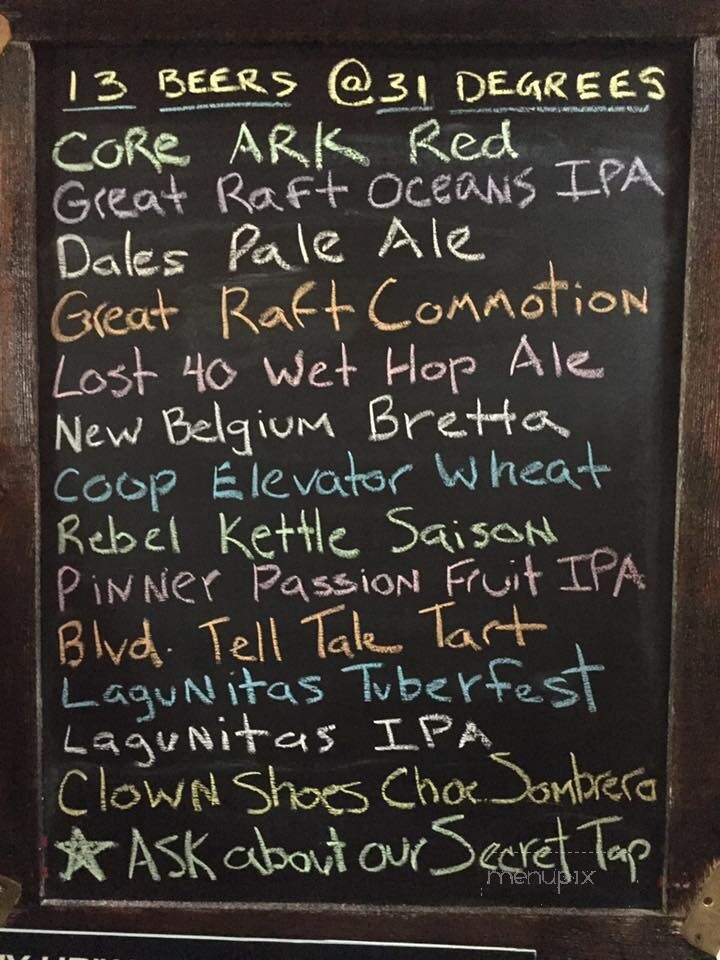 13 BEERS @ 31 DEGREES
CORE ARK Red
Great Raft OCEANS IPA
Dales Pale Ale
Great Raft Commotion
Lost 40 Wet Hop Ale
New Belgium Bretta
Coop Elevator Wheat
Rebel Kettle Saison
Pinner Passion Fruit IPA
Blvd. Tell Tale Tart
Lagunitas Tuberfest
Lagunitas IPA
Clown Shoes Choc Sombrero
ASK about our Secret Tap
menupix